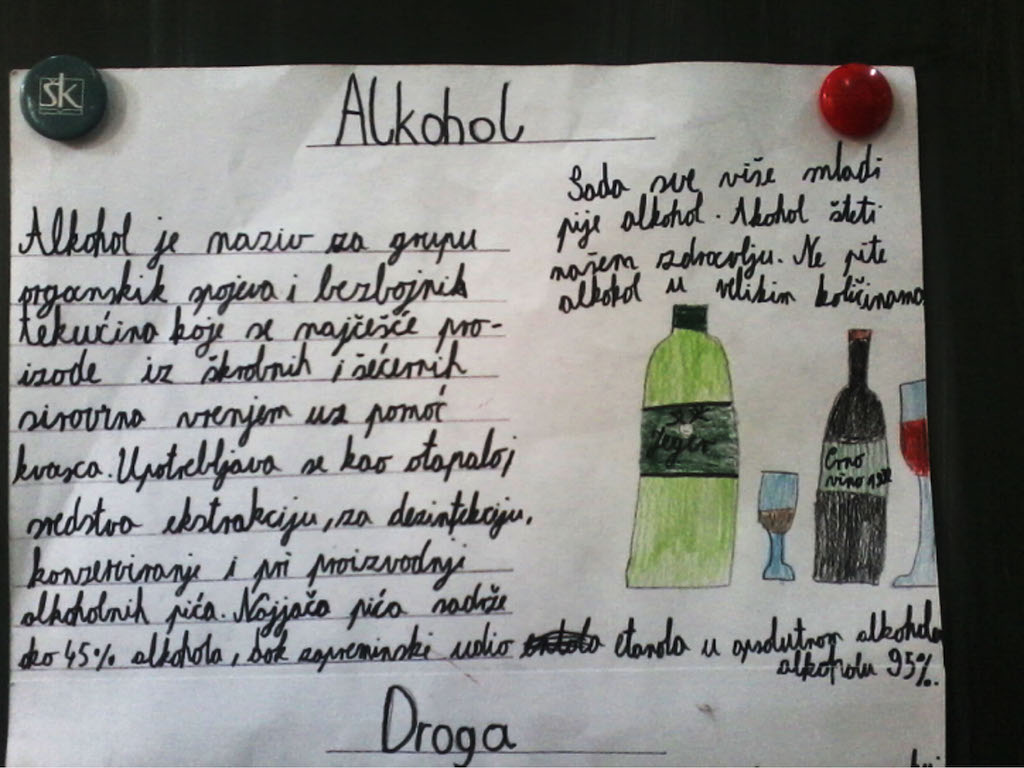 šk
Alkohol
Alkohol je naziv za grupu
organskih spojeva i bezbojnih
tekućina koje se najčešće pro-
izode iz škrobnih i šećernih
sirovina vrenjem uz pomoć
kvasca. Upotrebljava se kao otapalo,
sredstva ekstrakciju, za dezinfekciju,
konzerviranje i pri proizvodnji
alkoholnih pića. Najjača pića sadrže
oko 45% alkohola, dok zapreminski udio etanola u apsolutnom alkoholu
alkoholu 95%.
Sada sve više mladi
pije alkohol. Akohol šteti
našem zdravolju. Ne pite
alkohol u velikim količinama
Jeger
Crno
vino
Droga